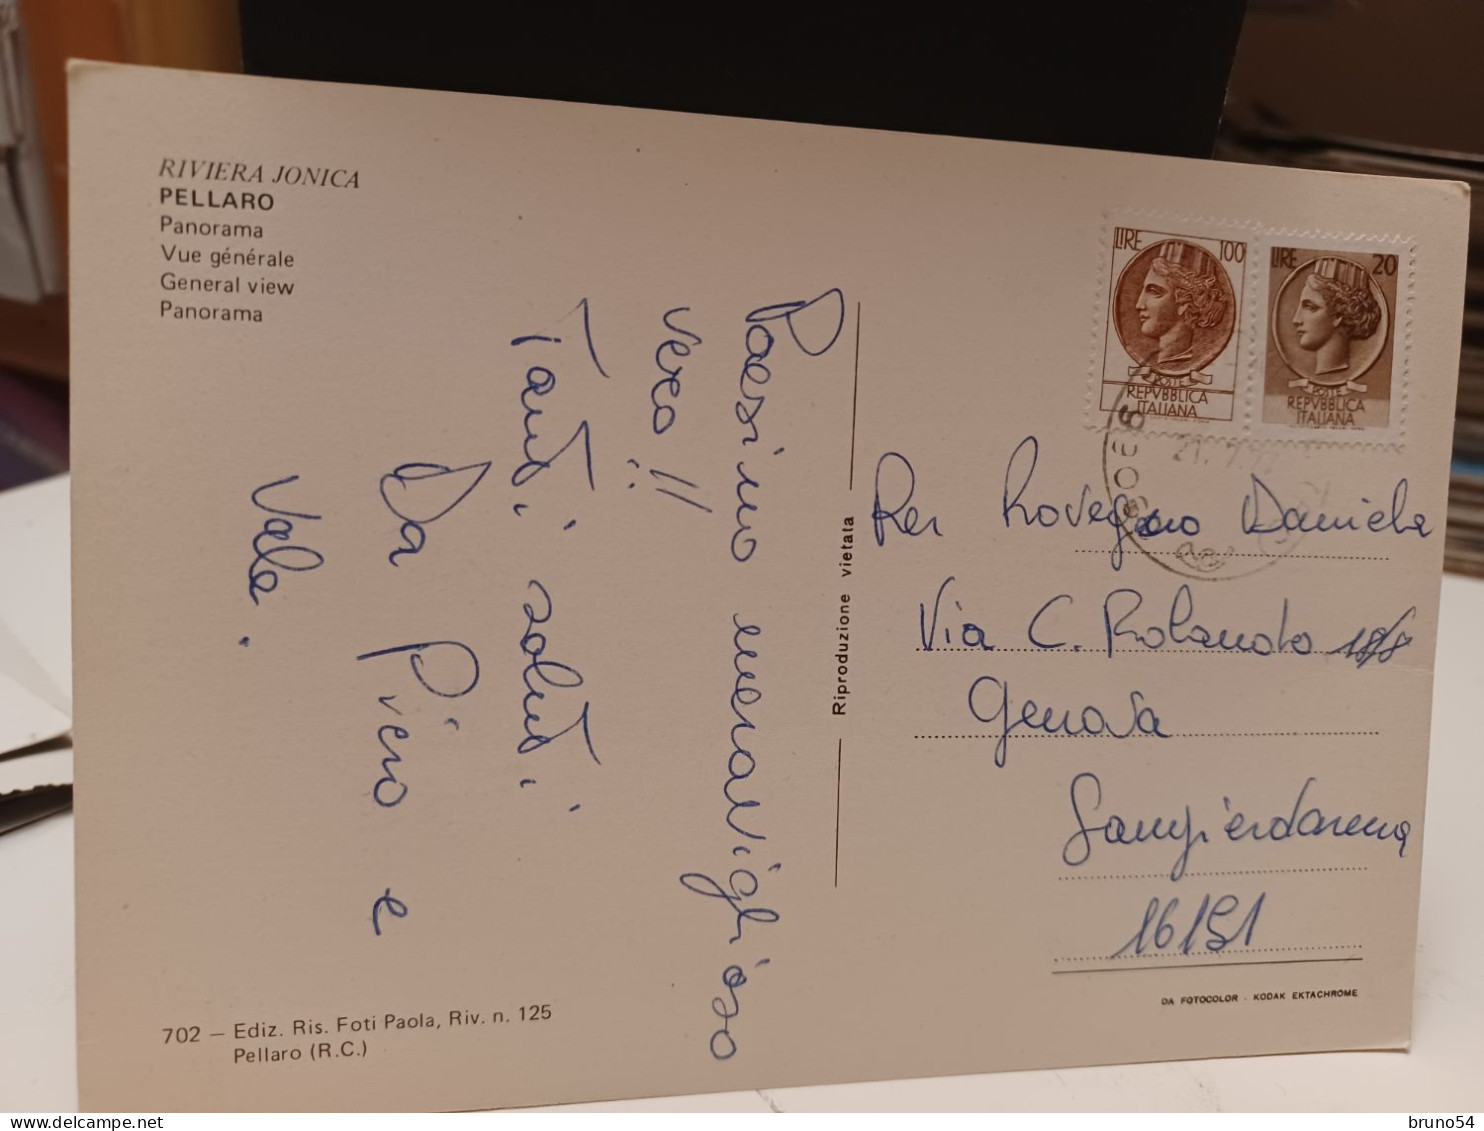 RIVIERA JONICA
PELLARO
Panorama
Vue générale
General view
Panorama
Paesino meraviglioso
vero!!
Tanti saluti
Da Piero e
Vale.
702 — Ediz. Ris. Foti Paola, Riv. n. 125
Pellaro (R.C.)
Riproduzione vietata
LIRE 100
POSTE
REPVBBLICA
ITALIANA
LIRE 20
POSTE
REPVBBLICA
ITALIANA
Per Rovegno Daniela
Via C. Rolando
Genova
Sampierdarena
16151
DA FOTOCOLOR - KODAK EKTACHROME
bruno54